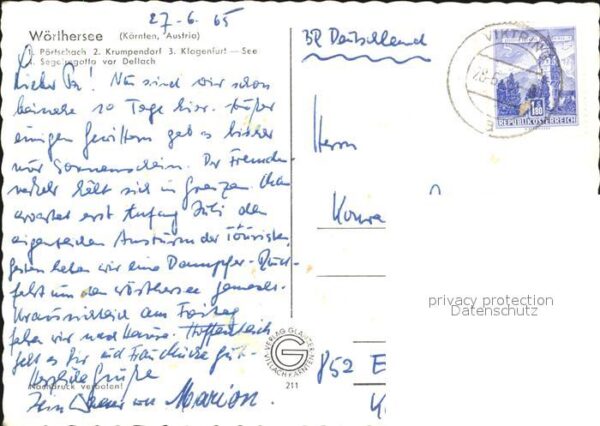 27-6.65
Wörthersee (Kärnten, Austria)
1. Pörtschach 2. Krumpendorf 3. Klagenfurt – See
4. Segelregatta vor Dellach
Nun sind wir schon
beinahe 10 Tage hier. Außer
einigen Gewittern gab es bisher
nur Sonnenschein. Der Fremden-
verkehr hält sich in Grenzen. Man
erwartet erst Anfang Juli den
eigentlichen Ansturm der Touristen.
Gestern haben wir eine Dampfer-Rund-
fahrt um den Wörthersee gemacht.
Voraussichtlich am Freitag
fahren wir nach Hause. Hoffentlich
geht es Dir und gut.
Herzliche Grüße
Nachdruck verboten!
Dein von Marion.
VERLAG
VILLACH-KÄRNTEN
G
211
BR Deutschland
VIKTRING
1.80
REPUBLIK ÖSTERREICH
Herrn
Konra
privacy protection
Datenschutz
852 E